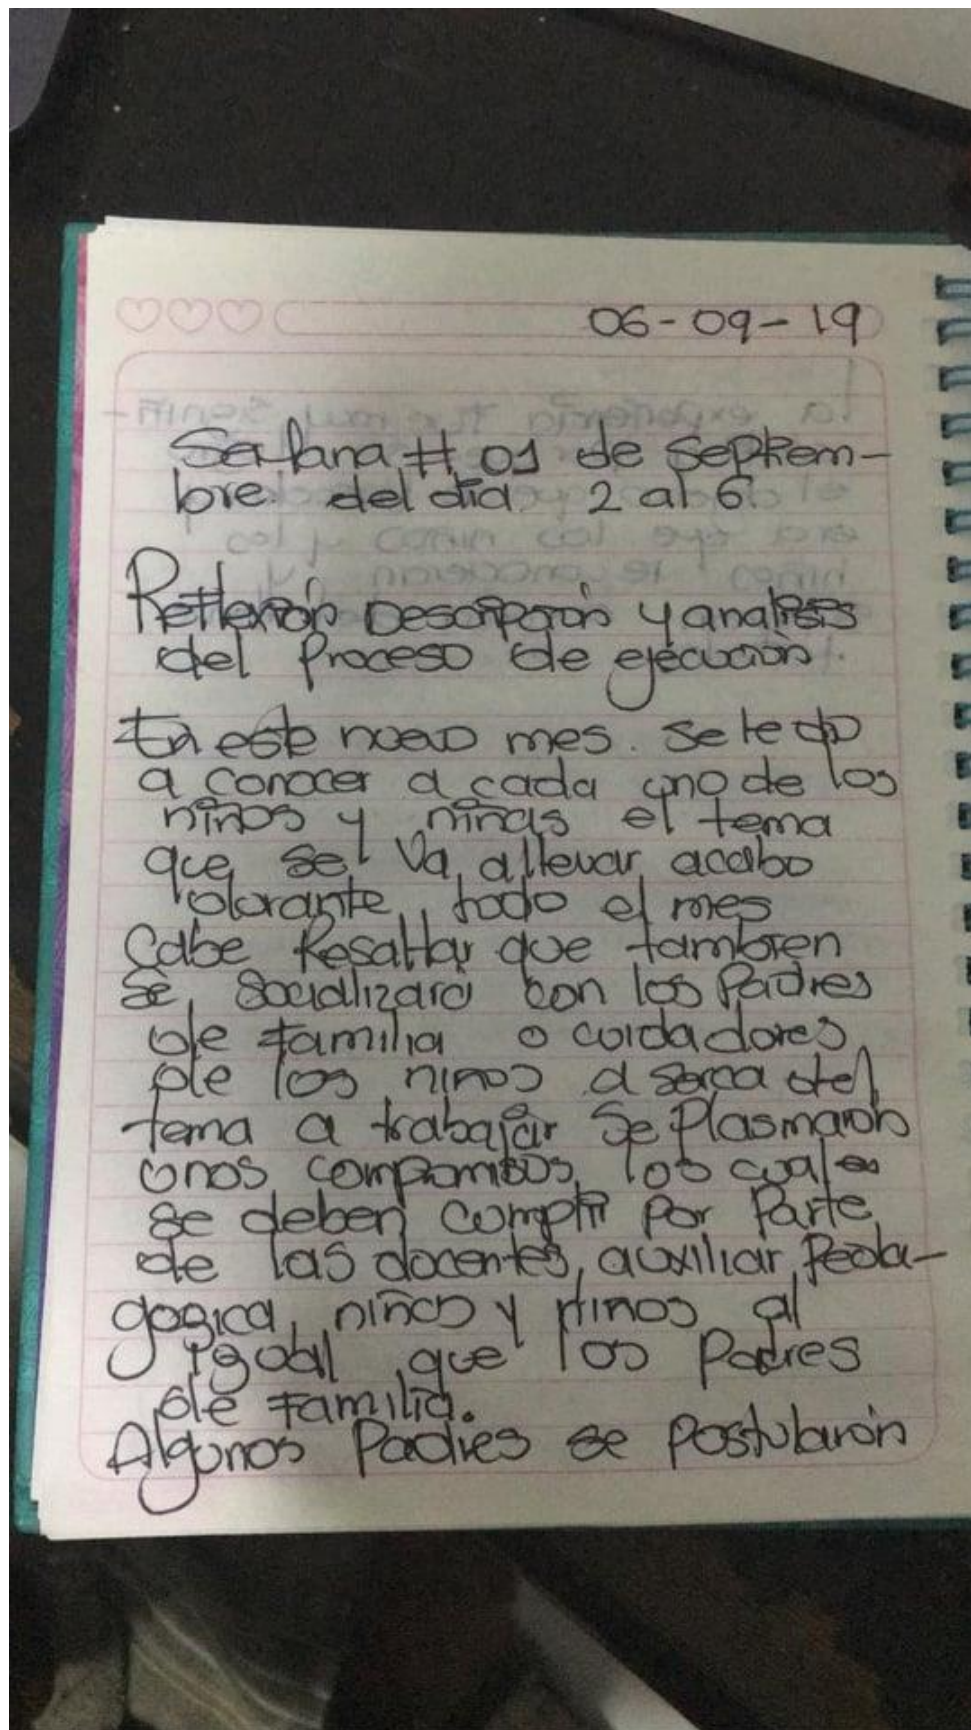 06-09-19
Semana # 01 de Septiem-
bre del día 2 al 6.
Reflexión Descripción y analisis
del Proceso de ejecución.
En este nuevo mes. se le dio
a conocer a cada uno de los
niños y niñas el tema
que se va allevar acabo
durante todo el mes
Cabe Resaltar que tambien
se socializará con los Padres
de Familia o cuidadores
de los niños a serca del
tema a trabajar Se Plasmarón
unos compromisos, los cuales
se deben complir Por Parte
de las docentes, auxiliar Peda-
gogica, niños y niños al
igual que los Padres
de Familia.
Algunos Padres se Postularón